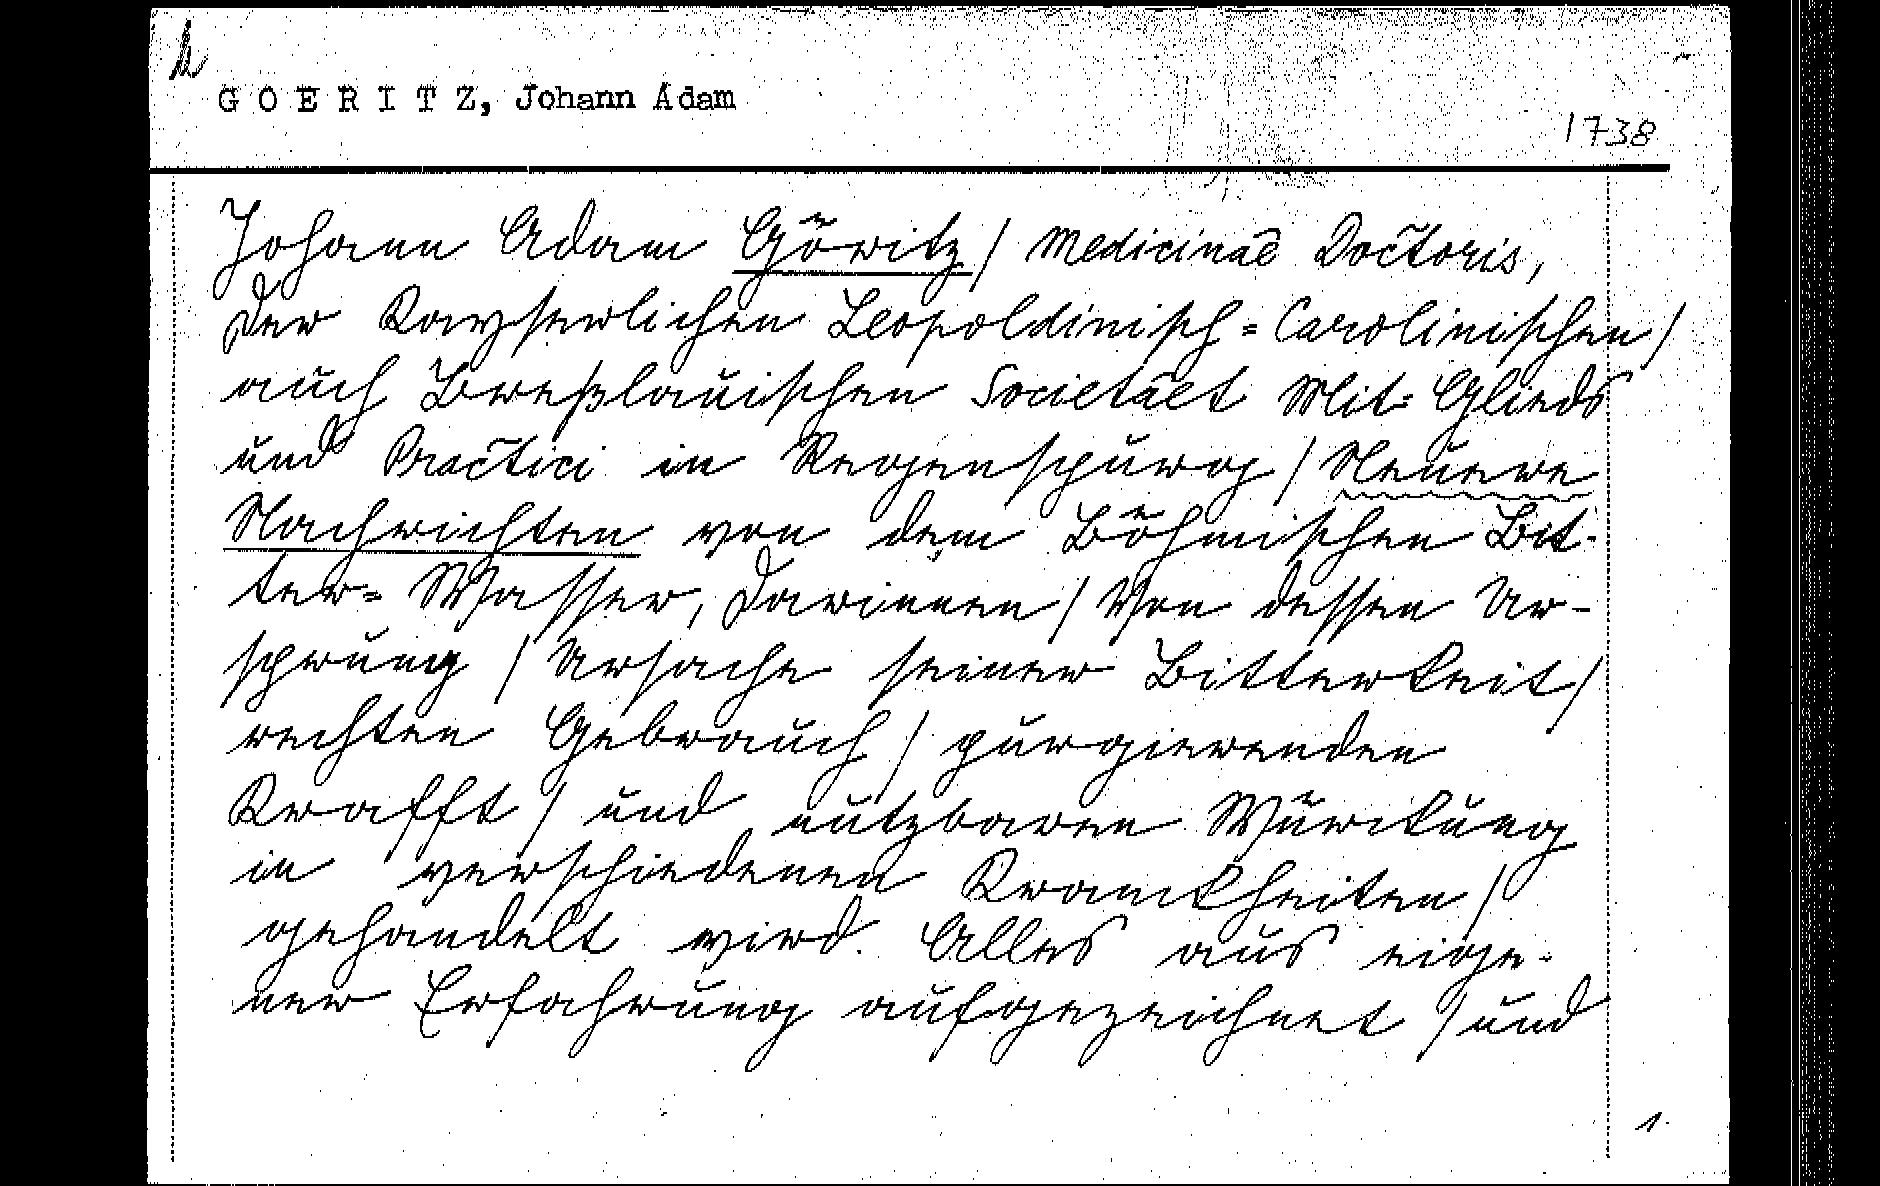 h
GOERITZ, Johann Adam
1738
Johann Adam Göritz / Medicinae Doctoris,
Der Kayserlichen Leopoldinisch=Carolinischen /
auch Breßlauischen Societaet Mit=Glieds
und Practici in Regenspurg / Neuere
Nachrichten von dem Böhmischen Bit-
ter=Wasser, Darinnen / Von dessen Ur-
sprung / Ursache seiner Bitterkeit /
rechten Gebrauch / purgierenden
Krafft / und nutzbaren Würckung
in verschiedenen Kranckheiten /
gehandelt wird. Alles aus eige-
ner Erfahrung aufgezeichnet / und
1.